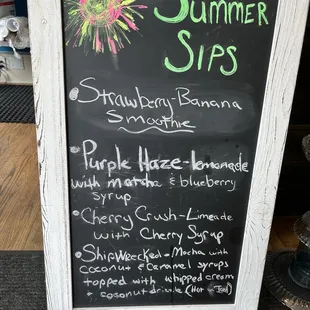 Summer
Sips
Strawberry-Banana
Smoothie
Purple Haze-lemonade
with matcha & blueberry
syrup
Cherry Crush-Limeade
with Cherry Syrup
Shipwrecked-Mocha with
coconut & caramel syrups
topped with whipped cream
& coconut drizzle (Hot or Iced)